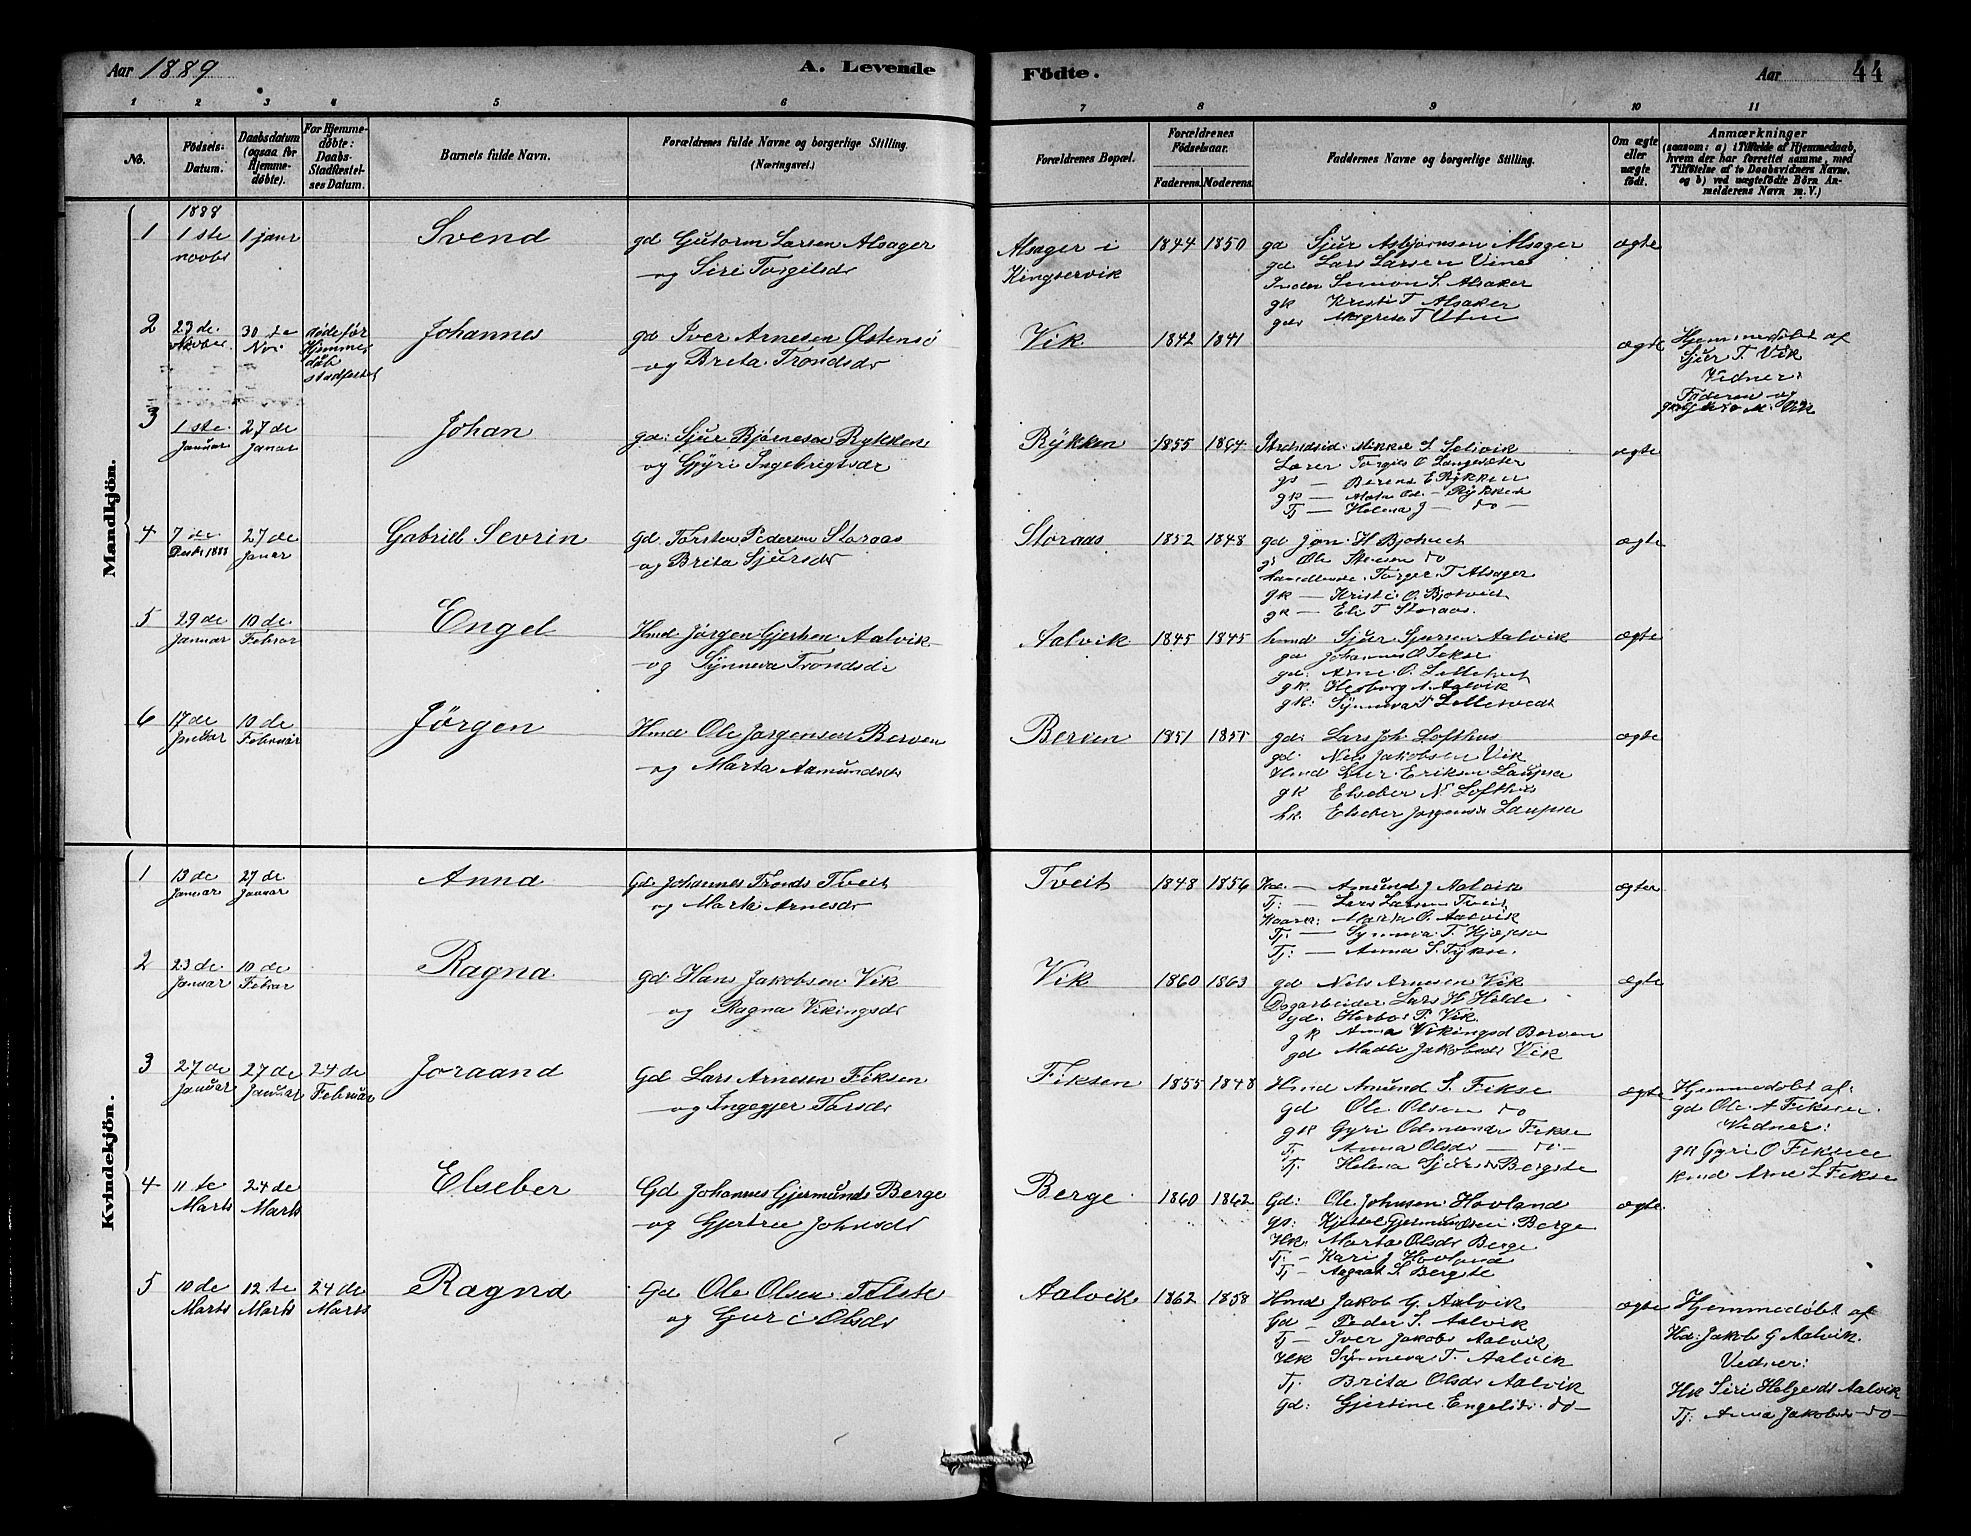 Aar 1889
A. Levende
Födte.
Aar
44
1 2 3 4 5 6 7 8 9 10 11
No.
Födsels-
Datum.
Daabsdatum
(ogsaa for
Hjemme-
döbte).
For Hjemme-
döbte:
Daabs-
Stadfæstel-
ses Datum.
Barnets fulde Navn.
Forældrenes fulde Navne og borgerlige Stilling.
(Næringsvei.)
Forældrenes Bopæl.
Forældrenes
Födselsaar.
Faderens. Moderens.
Faddernes Navne og borgerlige Stilling.
Om ægte
eller
uægte
födt.
Anmærkninger
(saasom: a) i Tilfælde af Hjemmedaab,
hvem der har forrettet samme, med
Tilföielse af to Daabsvidners Navne.
og b) ved uægtefödte Börn An-
melderens Navn m. V.)
Mandkjön.
1888
1
1 ste
novbr
1 janr
Svend
gd Gutorm Larsen Alsager
og Siri Torgilsdr
Alsager i
Kingservik
1844 1850
gd Sjur Asbjørnsen Alsager
gd Lars Larsen Vines
Simon S. Alsaker
gk Kristi T Alsaker
ægte
2
23 de
30 te
Nov
døde før
Hjemme
daab
stadfæstet
Johannes
gd Iver Arnesen Østensø
og Brita Trondsdr
Vik
1842 1841
ægte
Hjemmedøbt af
Sjur T. Vik
Vidner:
Faderen og
3
1 ste
Januar
27 de
Januar
Johan
gd: Sjur Bjørnesen Rykken
og Gyri Ingebrigtsdr
Rykken
1855 1864
Mikkel S Selsvik
Lærer Torgils O Langesæter
gs — Berent E Rykken
gk — Od. — Rykken
Tj — Helena J — do —
ægte
4
7 de
Decbr 1888
27 de
Januar
Gabriel Sevrin
gd Torsten Pedersen Storaas
og Brita Sjursdr
Storaas
1852 1848
gd Jon H Bjotveit
Ole Steinsen do
Torger T Alsager
gk — Kristi O. Bjotveit
gk — Eli T Storaas.
ægte
5
29 de
Januar
10 de
Februar
Engel
Hmd Jørgen Gjertsen Aalvik
og Synneva Trondsdr
Aalvik
1845 1845
hmd Sjur Sjursen Aalvik
gd Johannes O Sekse
gd: Arne O.
gk. Herborg A. Aalvik
gk: Synneva T
ægte
6
17 de
Januar
10 de
Februar
Jørgen
Hmd Ole Jørgensen Berven
og Marta Aamundsdr
Berven
1851 1855
gd: Lars Joh. Lofthus
gd. Nels Jakobsen Vik
Hmd Eriksen Laupsa
gk Elseber N Lofthus
hk. Elseber Jørgensdr Laupsa
ægte
Kvindekjön.
1
13 de
Januar
27 de
Januar
Anna
Gd. Johannes Tronds Tveit
og Marta Arnesdr
Tveit
1848 1856
Hd. — Amund J Aalvik
Tj: — Lars Larsen Tveit
Marta O. Aalvik
Tj. — Synneva T. Hjæpsø
Tj: — Anna S. Fykse.
ægte
2
23 de
Januar
10 de
Febrar
Ragna
Gd Hans Jakobsen Vik
og Ragna Vikingsdr
Vik
1860 1863
gd Nels Arnesen Vik
Dagarbeider Lars H Hilde
gd. T. Vik.
gk Anna Vikingsd Berven
gd Madli Jakobsdr Vik
ægte
3
27 de
Januar
27 de
Januar
24 de
Februar
Joraand
Gd Lars Arnesen Fiksen
og Ingegjer Torsdr
Fiksen
1855 1848
Hmd Amund S. Fikse
gd Ole Olsen do
gk Gyri Odmunds Fikse
Tj Anna Olsdr — do —
Tj. Helena Sjursdr Bergste
ægte
Hjemmedøbt af:
gd Ole A Fiksen.
Vidner:
gk Gyri O Fiksen
Hmd Arne L Fikse
4
11 te
Marts
24 de
Marts
Elseber
Gd Johannes Gjermunds Berge
og Gjertru Johnsdr
Berge
1860 1862
Gd: Ole Johnsen Hovland
gs: Kjettel Gjermundsen Berge
Hk: Marta Olsdr Berge
Tj: — Kari J Hovland
Tj — Aagaat S. Bergste
ægte
5
10 de
Marts
12 te
Marts
24 de
Marts
Ragna
Gd Ole Olsen Telste
og Guri Olsdr
Aalvik
1862 1858
Hmd Jakob G. Aalvik
Gd — Peder S. Aalvik
Tj — Iver Jakobs Aalvik
Hk Synneva T. Aalvik
Tj. Brita Olsdr Aalvik
Gd: Gjertine Engelsdr. do —
ægte
Hjemmedøbt af
Hd: Jakob G Aalvik.
Vidner:
Hk Siri Helgesdr Aalvik
Tj: Anna Jakobsdr — do —